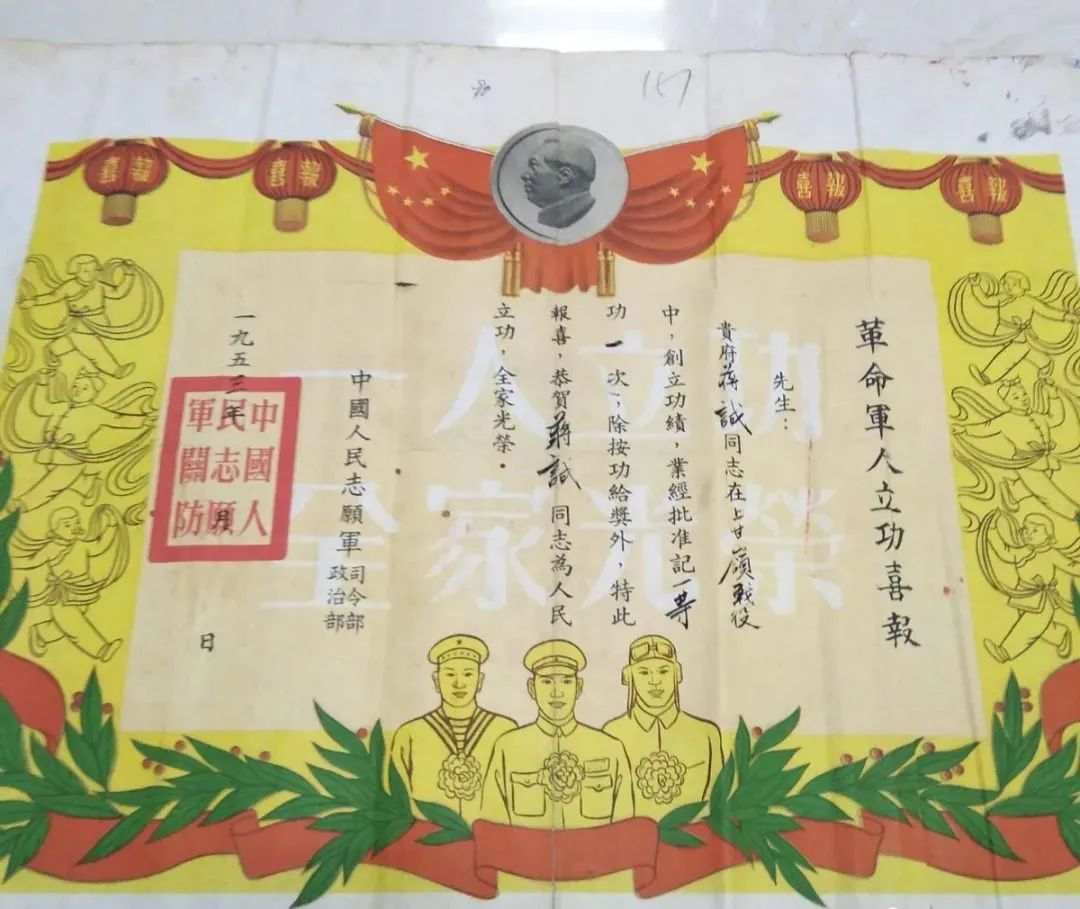 157
喜報
喜報
喜報
喜報
一人立功
全家光榮
革命軍人立功喜報
先生：
貴府蔣誠同志在上甘嶺戰役
中，創立功績，業經批准記一等
功一次，除按功給獎外，特此
報喜，恭賀蔣誠同志為人民
立功，全家光榮。
中國人民志願軍司令部
政治部
一九五三年 月 日
中國人
民志願
軍關防